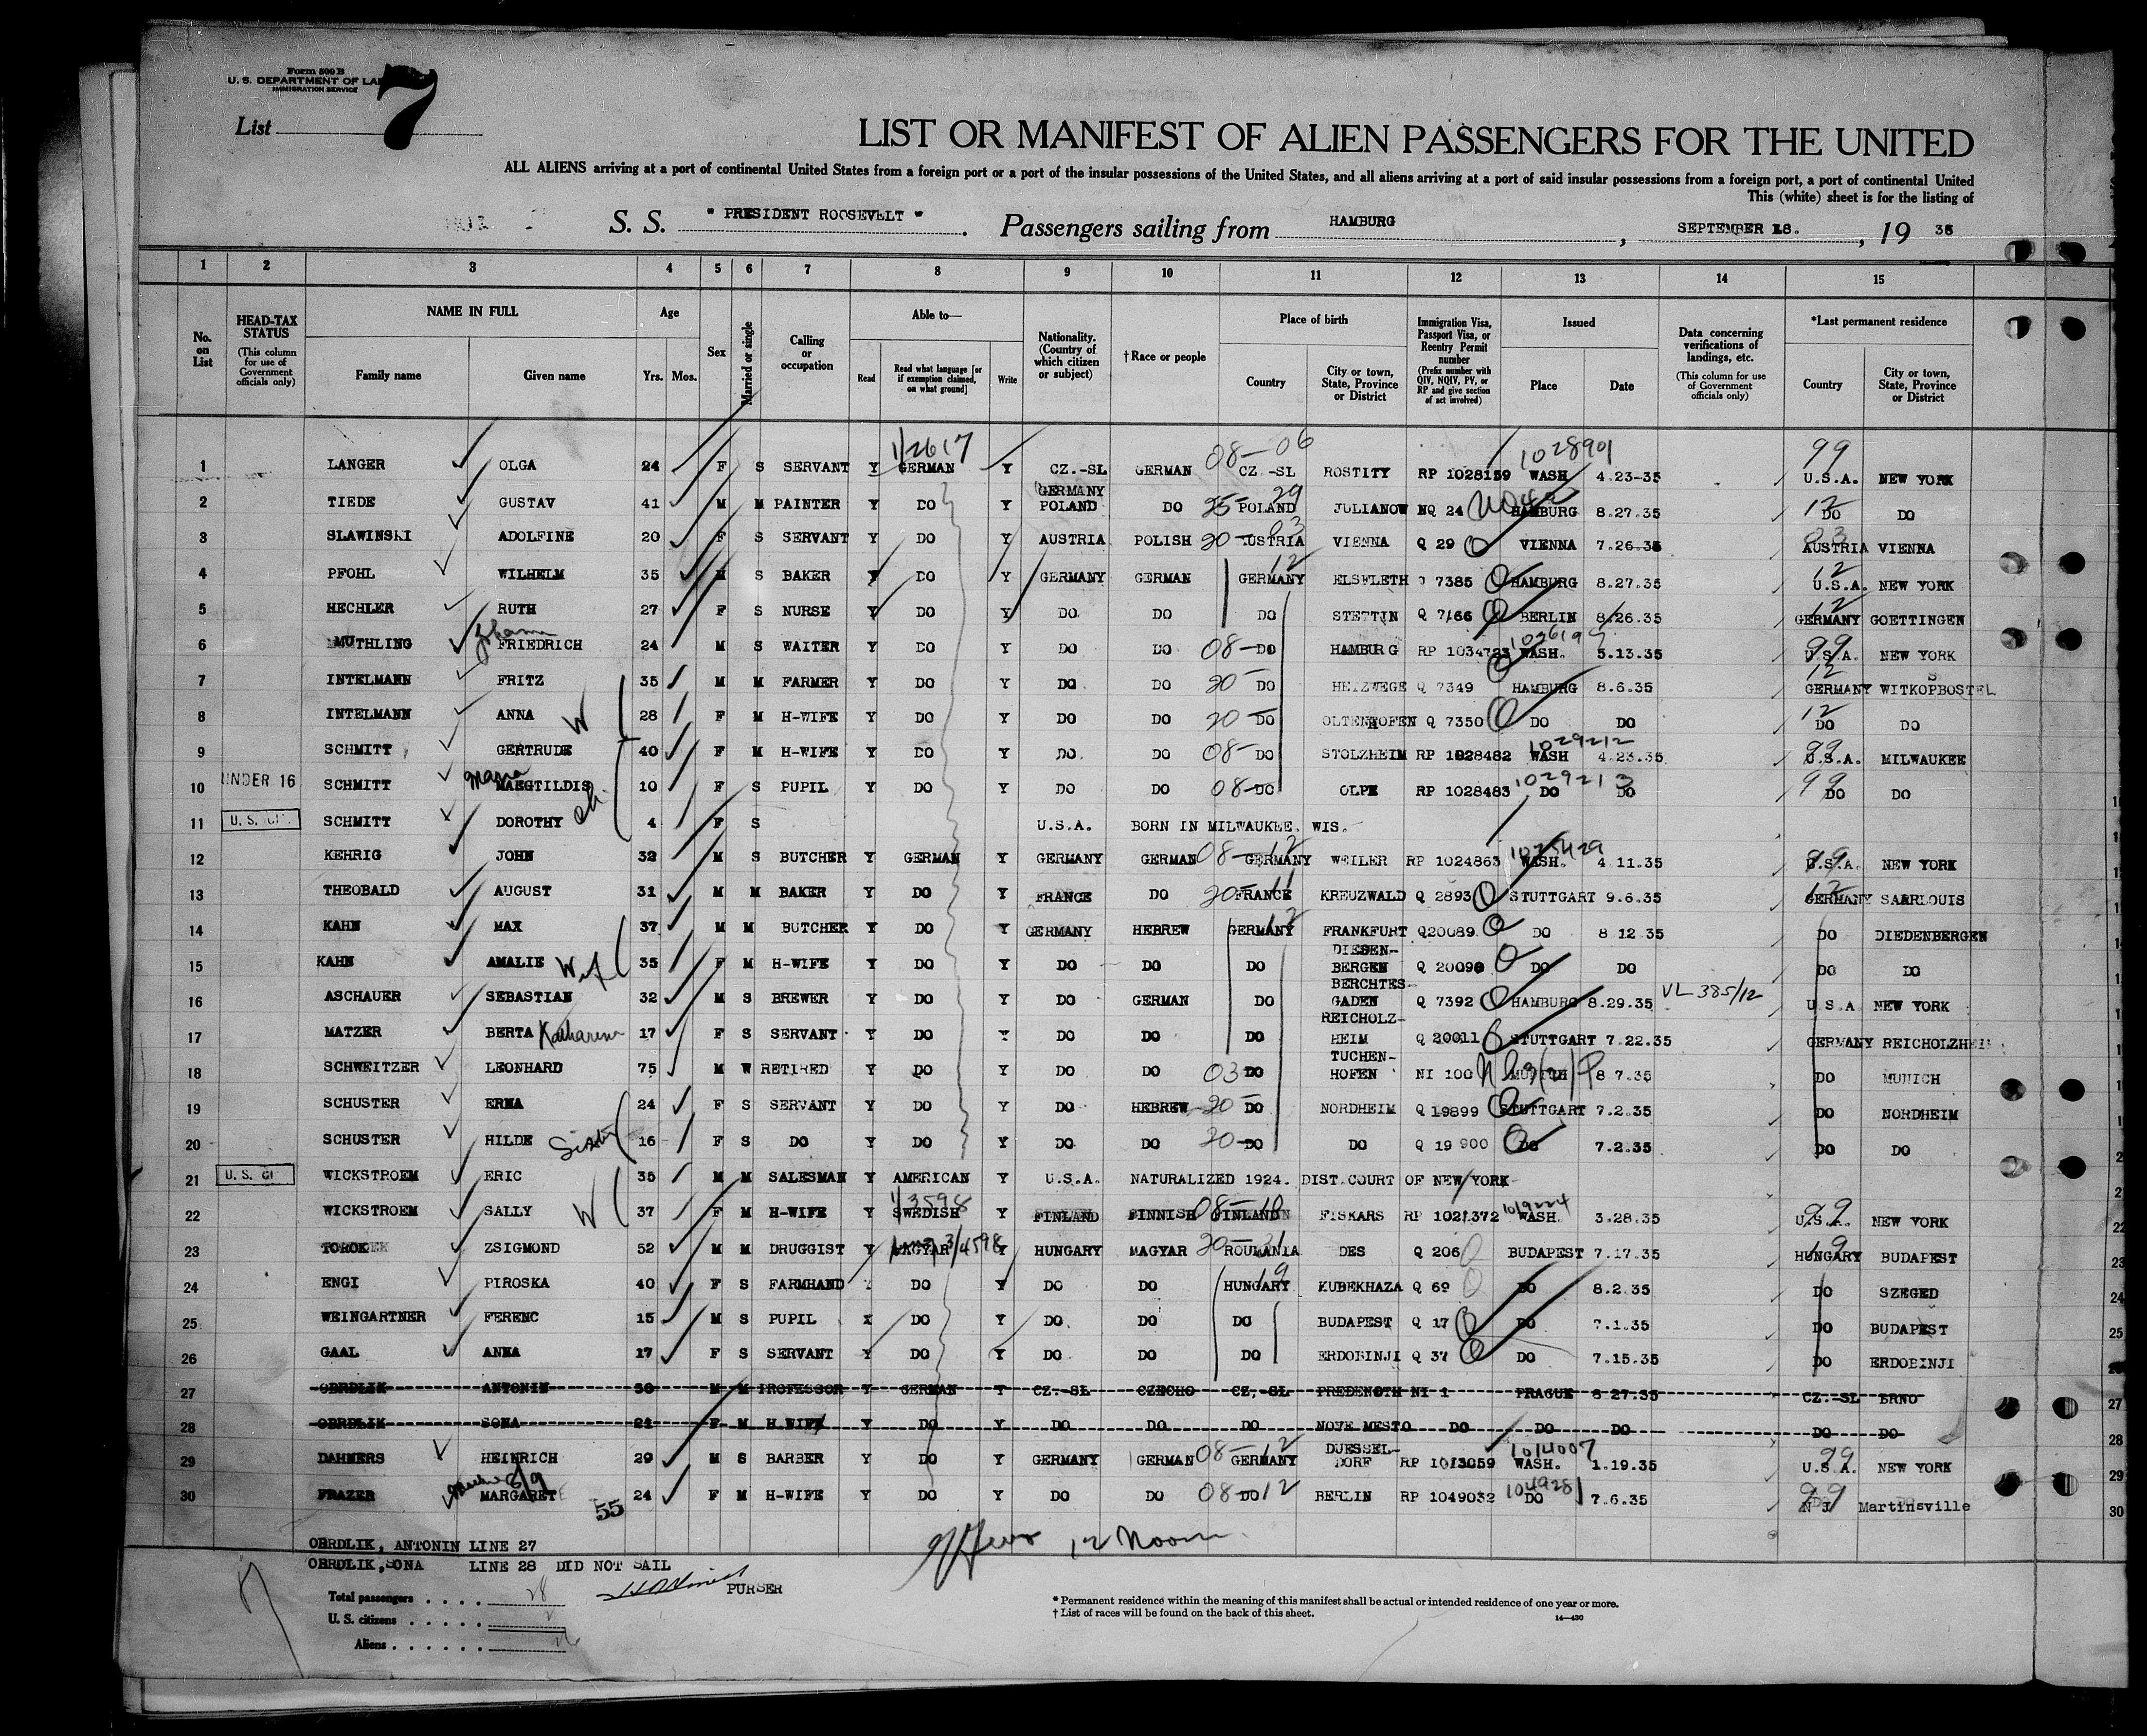 Form 500 B
U. S. DEPARTMENT OF
IMMIGRATION SERVICE
List 7
LIST OR MANIFEST OF ALIEN PASSENGERS FOR THE UNITED
ALL ALIENS arriving at a port of continental United States from a foreign port or a port of the insular possessions of the United States, and all aliens arriving at a port of said insular possessions from a foreign port, a port of continental United
This (white) sheet is for the listing of
S. S. " PRESIDENT ROOSEVELT ". Passengers sailing from HAMBURG, SEPTEMBER 18., 19 35
1 2 3 4 5 6 7 8 9 10 11 12 13 14 15
No. on List HEAD-TAX STATUS (This column for use of Government officials only) NAME IN FULL Family name Given name Age Yrs. Mos. Sex Married or single Calling or occupation Able to— Read Read what language [or if exemption claimed, on what ground] Write Nationality. (Country of which citizen or subject) †Race or people Place of birth Country City or town, State, Province or District Immigration Visa, Passport Visa, or Reentry Permit number (Prefix number with QIV, NQIV, PV, or RP and give section of act involved) Issued Place Date Data concerning verifications of landings, etc. (This column for use of Government officials only) *Last permanent residence Country City or town, State, Province or District
1 LANGER OLGA 24 F S SERVANT Y 1/2617 GERMAN Y CZ.-SL GERMAN 08-06 CZ.-SL ROSTITY RP 1028159 1028901 WASH 4.23-35 99 U.S.A. NEW YORK
2 TIEDE GUSTAV 41 M M PAINTER Y DO Y GERMANY POLAND DO 25-29 POLAND JULIANOW NQ 24 HAMBURG 8.27.35 12 DO DO
3 SLAWINSKI ADOLFINE 20 F S SERVANT Y DO Y AUSTRIA POLISH 20-03 AUSTRIA VIENNA Q 29 VIENNA 7.26.35 03 AUSTRIA VIENNA
4 PFOHL WILHELM 35 M S BAKER Y DO Y GERMANY GERMAN 12 GERMANY ELSFLETH Q 7385 HAMBURG 8.27.35 12 U.S.A. NEW YORK
5 HECHLER RUTH 27 F S NURSE Y DO Y DO DO DO STETTIN Q 7166 BERLIN 8.26.35 12 GERMANY GOETTINGEN
6 MUTHLING Johann FRIEDRICH 24 M S WAITER Y DO Y DO DO 08-DO HAMBURG RP 1034723 WASH. 5.13.35 99 U.S.A. NEW YORK
7 INTELMANN FRITZ 35 M M FARMER Y DO Y DO DO 20-DO HETZWEGE Q 7349 HAMBURG 8.6.35 12 GERMANY WITKOPBOSTEL
8 INTELMANN ANNA W 28 F M H-WIFE Y DO Y DO DO 20-DO Q 7350 DO DO 12 DO DO
9 SCHMITT GERTRUDE 40 F M H-WIFE Y DO Y DO DO 08-DO STOLZHEIM RP 1028482 1029212 WASH 4.23.35 99 U.S.A. MILWAUKEE
10 UNDER 16 SCHMITT Maria MAEGTILDIS 10 F S PUPIL Y DO Y DO DO 08-DO OLPE RP 1028483 1029213 DO DO 99 DO DO
11 U. S. CIT. SCHMITT DOROTHY ch 4 F S U.S.A. BORN IN MILWAUKEE. WIS.
12 KEHRIG JOHN 32 M S BUTCHER Y GERMAN Y GERMANY GERMAN 08-12 GERMANY WEILER RP 1024863 1025429 WASH. 4 11.35 99 U.S.A. NEW YORK
13 THEOBALD AUGUST 31 M M BAKER Y DO Y FRANCE DO 20-11 FRANCE KREUZWALD Q 2893 STUTTGART 9.6.35 12 GERMANY SAARLOUIS
14 KAHN MAX 37 M M BUTCHER Y DO Y GERMANY HEBREW 12 GERMANY FRANKFURT Q20089 DO 8 12.35 DO DIEDENBERGEN
15 KAHN AMALIE Wif 35 F M H-WIFE Y DO Y DO DO DO DIEDEN-BERGEN Q 20090 DO DO DO DO
16 ASCHAUER SEBASTIAN 32 M S BREWER Y DO Y DO GERMAN DO BERCHTES-GADEN Q 7392 HAMBURG 8.29.35 VL 385/12 U.S.A NEW YORK
17 MATZER BERTA Katharina 17 F S SERVANT Y DO Y DO DO DO REICHOLZ-HEIM Q 20011 STUTTGART 7.22.35 GERMANY REICHOLZHEIM
18 SCHWEITZER LEONHARD 75 M W RETIRED Y DO Y DO DO 03 DO TUCHEN-HOFEN NI 100 MUNICH 8 7.35 DO MUNICH
19 SCHUSTER ERNA 24 F S SERVANT Y DO Y DO HEBREW 20-DO NORDHEIM Q 19899 STUTTGART 7.2.35 DO NORDHEIM
20 SCHUSTER HILDE Sister 16 F S DO Y DO Y DO DO 20-DO DO Q 19 900 DO 7.2.35 DO DO
21 U. S. CIT WICKSTROEM ERIC 35 M M SALESMAN Y AMERICAN Y U.S.A. NATURALIZED 1924. DIST.COURT OF NEW YORK
22 WICKSTROEM SALLY W 37 F M H-WIFE Y 1/3598 SWEDISH Y FINLAND FINNISH 08-10 FINLAND FISKARS RP 1021372 1019224 WASH. 3.28.35 99 U.S.A. NEW YORK
23 TOROK ZSIGMOND 52 M M DRUGGIST Y MAGYAR 3/4598 Y HUNGARY MAGYAR 20-31 ROUMANIA DES Q 206 BUDAPEST 7.17.35 19 HUNGARY BUDAPEST
24 ENGI PIROSKA 40 F S FARMHAND Y DO Y DO DO 19 HUNGARY KUBEKHAZA Q 69 DO 8.2.35 DO SZEGED
25 WEINGARTNER FERENC 15 M S PUPIL Y DO Y DO DO DO BUDAPEST Q 17 DO 7.1.35 DO BUDAPEST
26 GAAL ANNA 17 F S SERVANT Y DO Y DO DO DO ERDOBINJI Q 37 DO 7.15.35 DO ERDOBINJI
27 OBRDLIK ANTONIN 30 M M PROFESSOR Y GERMAN Y CZ.-SL CZECHO CZ.-SL NI 1 PRAGUE 8 27.35 CZ.-SL BRNO
28 OBRDLIK SONA 21 F M H WIFE Y DO Y DO DO DO NOVE MESTO DO DO DO DO DO
29 DAHMERS HEINRICH 29 M S BARBER Y DO Y GERMANY GERMAN 08-12 GERMANY DUESSEL-DORF RP 1013059 1014007 WASH. 1.19.35 99 U.S.A. NEW YORK
30 FRAZER MARGARET 24 F M H-WIFE Y DO Y DO DO 08-DO 12 BERLIN RP 1049032 1049281 DO 7.6.35 99 N J Martinsville
55
OBRDLIK, ANTONIN LINE 27
OBRDLIK, SONA LINE 28 DID NOT SAIL
PURSER
12 Noon
Total passengers . . . . 28
U. S. citizens . . . . . 2
Aliens . . . . . . 26
* Permanent residence within the meaning of this manifest shall be actual or intended residence of one year or more.
† List of races will be found on the back of this sheet.
14—430